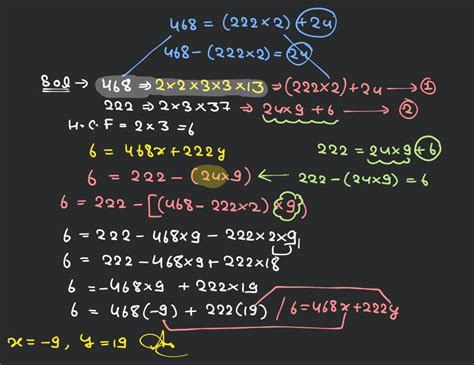 468 = (222×2) +24
468-(222×2) = 24
Sol → 468 ⇒ 2×2×3×3×13 ⇒ (222×2)+24 → ①
222 ⇒ 2×3×37 ⇒ 24×9 + 6 → ②
H.C.F = 2×3 = 6
6 = 468x + 222y
222 = 24×9 + 6
6 = 222 - (24×9) ← 222-(24×9) = 6
6 = 222 - [(468 - 222×2) ×9]
6 = 222 - 468×9 - 222×2×9
6 = 222 - 468×9 + 222×18
6 = -468×9 + 222×19
6 = 468(-9) + 222(19) / 6=468x+222y
x = -9, y = 19 Ans